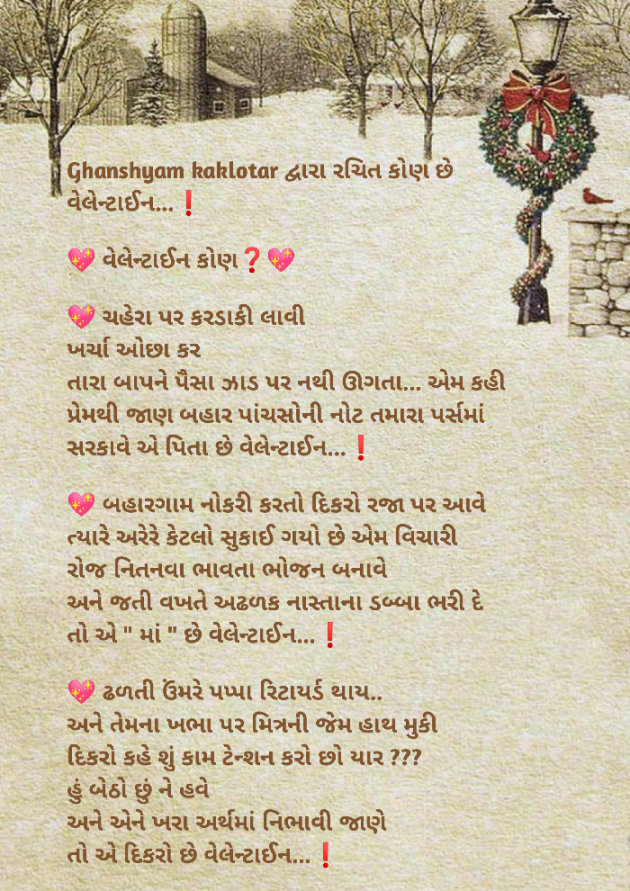 Ghanshyam kaklotar દ્વારા રચિત કોણ છે
વેલેન્ટાઈન...❗
💖 વેલેન્ટાઈન કોણ❓💖
💖 ચહેરા પર કરડાકી લાવી
ખર્ચા ઓછા કર
તારા બાપને પૈસા ઝાડ પર નથી ઊગતા... એમ કહી
પ્રેમથી જાણ બહાર પાંચસોની નોટ તમારા પર્સમાં
સરકાવે એ પિતા છે વેલેન્ટાઈન...❗
💖 બહારગામ નોકરી કરતો દિકરો રજા પર આવે
ત્યારે અરેરે કેટલો સુકાઈ ગયો છે એમ વિચારી
રોજ નિતનવા ભાવતા ભોજન બનાવે
અને જતી વખતે અઢળક નાસ્તાના ડબ્બા ભરી દે
તો એ " માં " છે વેલેન્ટાઈન...❗
💖 ઢળતી ઉંમરે પપ્પા રિટાયર્ડ થાય..
અને તેમના ખભા પર મિત્રની જેમ હાથ મુકી
દિકરો કહે શું કામ ટેન્શન કરો છો યાર ???
હું બેઠો છું ને હવે
અને એને ખરા અર્થમાં નિભાવી જાણે
તો એ દિકરો છે વેલેન્ટાઈન...❗